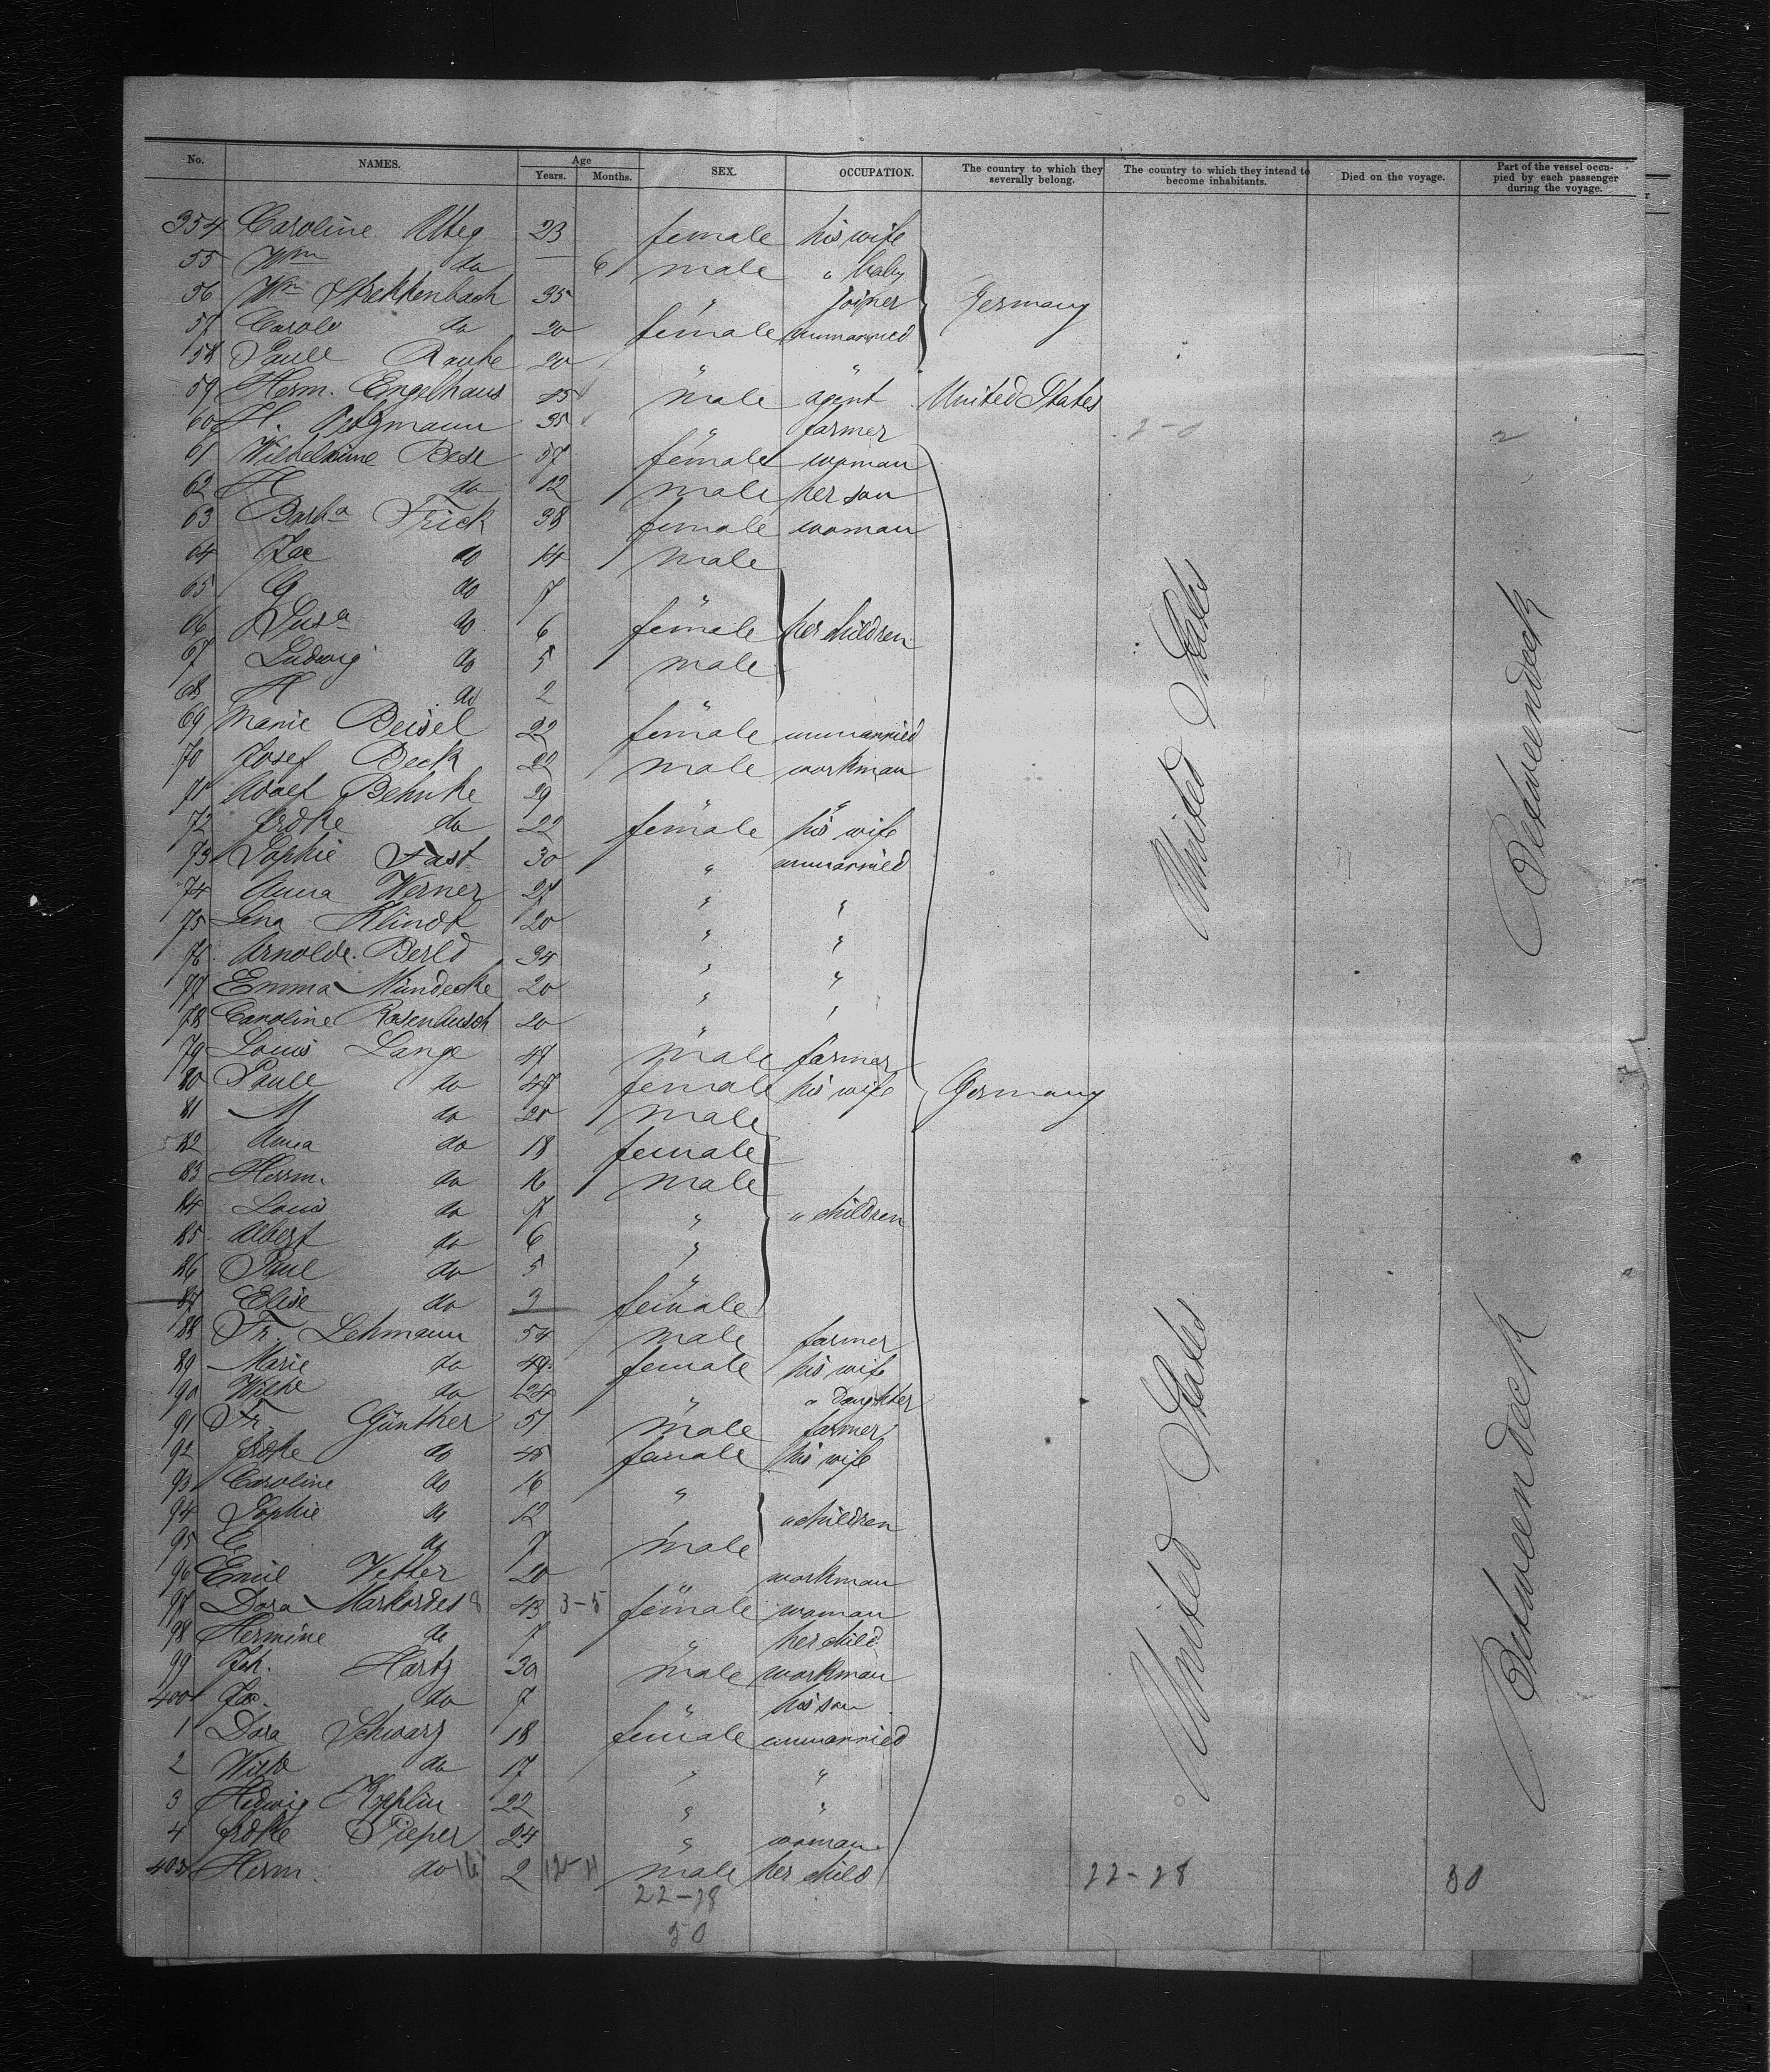 No. NAMES. Age Years. Months. SEX. OCCUPATION. The country to which they severally belong. The country to which they intend to become inhabitants. Died on the voyage. Part of the vessel occupied by each passenger during the voyage.
354 Caroline 23 female his wife
55 Wm do — 6 male " baby
56 Wm 35 " joiner Germany
57 do 20 female unmarried
58 Paule Rauhe 20 " "
59 Herm. Engelhaus 25 male agent United States
60 H. 35 " farmer 2-0 2
61 Wilhelmine Bese 57 female woman
62 H do 12 male her son
63 Barba Frick 38 female woman
64 Jac do 14 male
65 G do 7 "
66 Susa do 6 female her children
67 Ludwig do 5 male
68 H do 2 "
69 Marie Beisel 22 female unmarried
70 Josef Beck 22 male workman
71 Adolf Behnke 29 " "
72 Fredke do 22 female his wife
73 Sophie Fast 30 " unmarried
74 Anna Werner 27 " "
75 Lena Klindt 20 " "
76 Arnolde Berld 34 " "
77 Emma Mündecke 20 " "
78 Caroline Rosenbusch 20 " "
79 Louis Lange 47 male farmer
80 Paule do 47 female his wife Germany
81 M do 20 male
82 Anna do 18 female
83 Herrm. do 16 male
84 Louis do 7 " " children
85 Albert do 6 "
86 Paul do 5 "
87 Elise do 2 female
88 Fr. Lehmann 54 male farmer
89 Marie do 49 female his wife
90 Wilhe do 24 " " Daughter
91 Fr. Günther 51 male farmer
92 Fredke do 45 female his wife
93 Caroline do 16 "
94 Sophie do 12 " " children
95 E do 7 male
96 Emil Vetter 20 " workman
97 Dora Markordes 8 43 3-5 female woman
98 Hermine do 7 " her child
99 Joh. Hartz 30 male workman
400 Jac. do 7 " his son
1 Dora Schwarz 18 female unmarried
2 Wilhe do 17 " "
3 Hedwig Kopplin 22 " "
4 Fredke Pieper 24 " woman
405 Herm. do 16 2 12-11 male her child 22-28 50
United States
Betweendeck
United States
Betweendeck
22-28
50